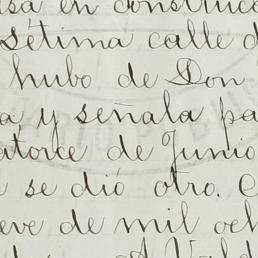 sa en construcc
sétima calle d
hubo de Don
a y señala pa
atorce de Junio
se dió otro. C
eve de mil och